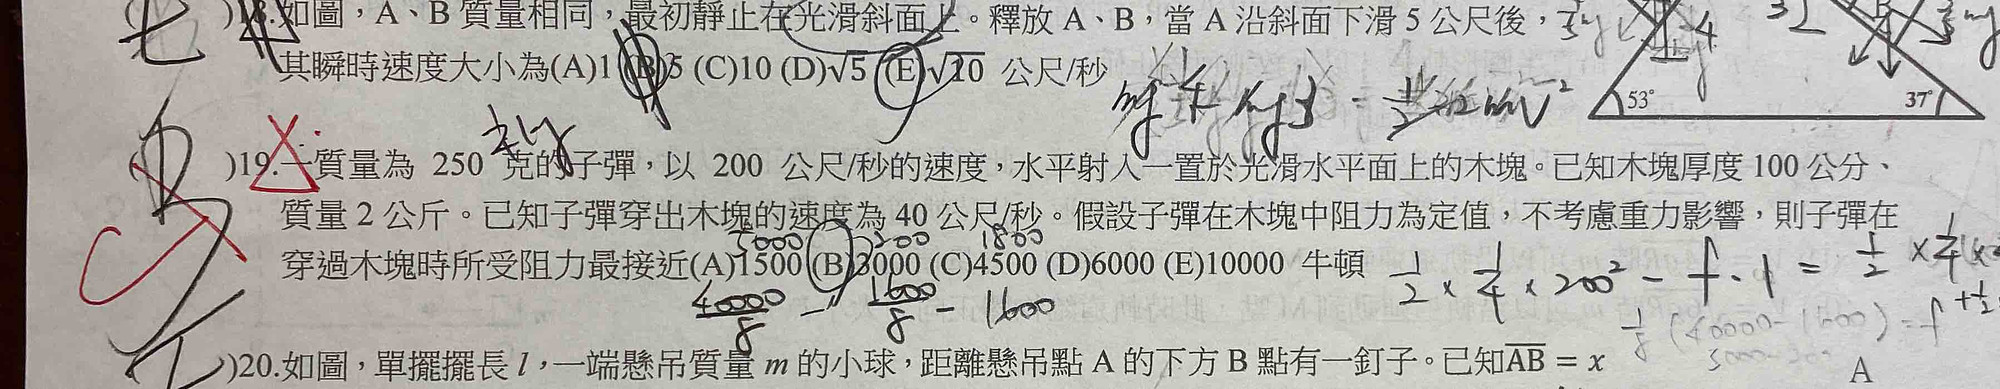 )18.如圖，A、B 質量相同，最初靜止在光滑斜面上。釋放 A、B，當 A 沿斜面下滑 5 公尺後，
其瞬時速度大小為(A)1 (B)5 (C)10 (D)√5 (E)√10 公尺/秒
53° 37°
)19.一質量為 250 克的子彈，以 200 公尺/秒的速度，水平射入一置於光滑水平面上的木塊。已知木塊厚度 100 公分、
質量 2 公斤。已知子彈穿出木塊的速度為 40 公尺/秒。假設子彈在木塊中阻力為定值，不考慮重力影響，則子彈在
5000 200 1800
穿過木塊時所受阻力最接近(A)1500 (B)3000 (C)4500 (D)6000 (E)10000 牛頓
1/2 × 1/4 × 200² − f · 1 = 1/2 × 1/4
40000/8 − 1600/8 − 1600
1/8 (40000 − 1600) = f
)20.如圖，單擺擺長 l，一端懸吊質量 m 的小球，距離懸吊點 A 的下方 B 點有一釘子。已知A̅B̅ = x
A